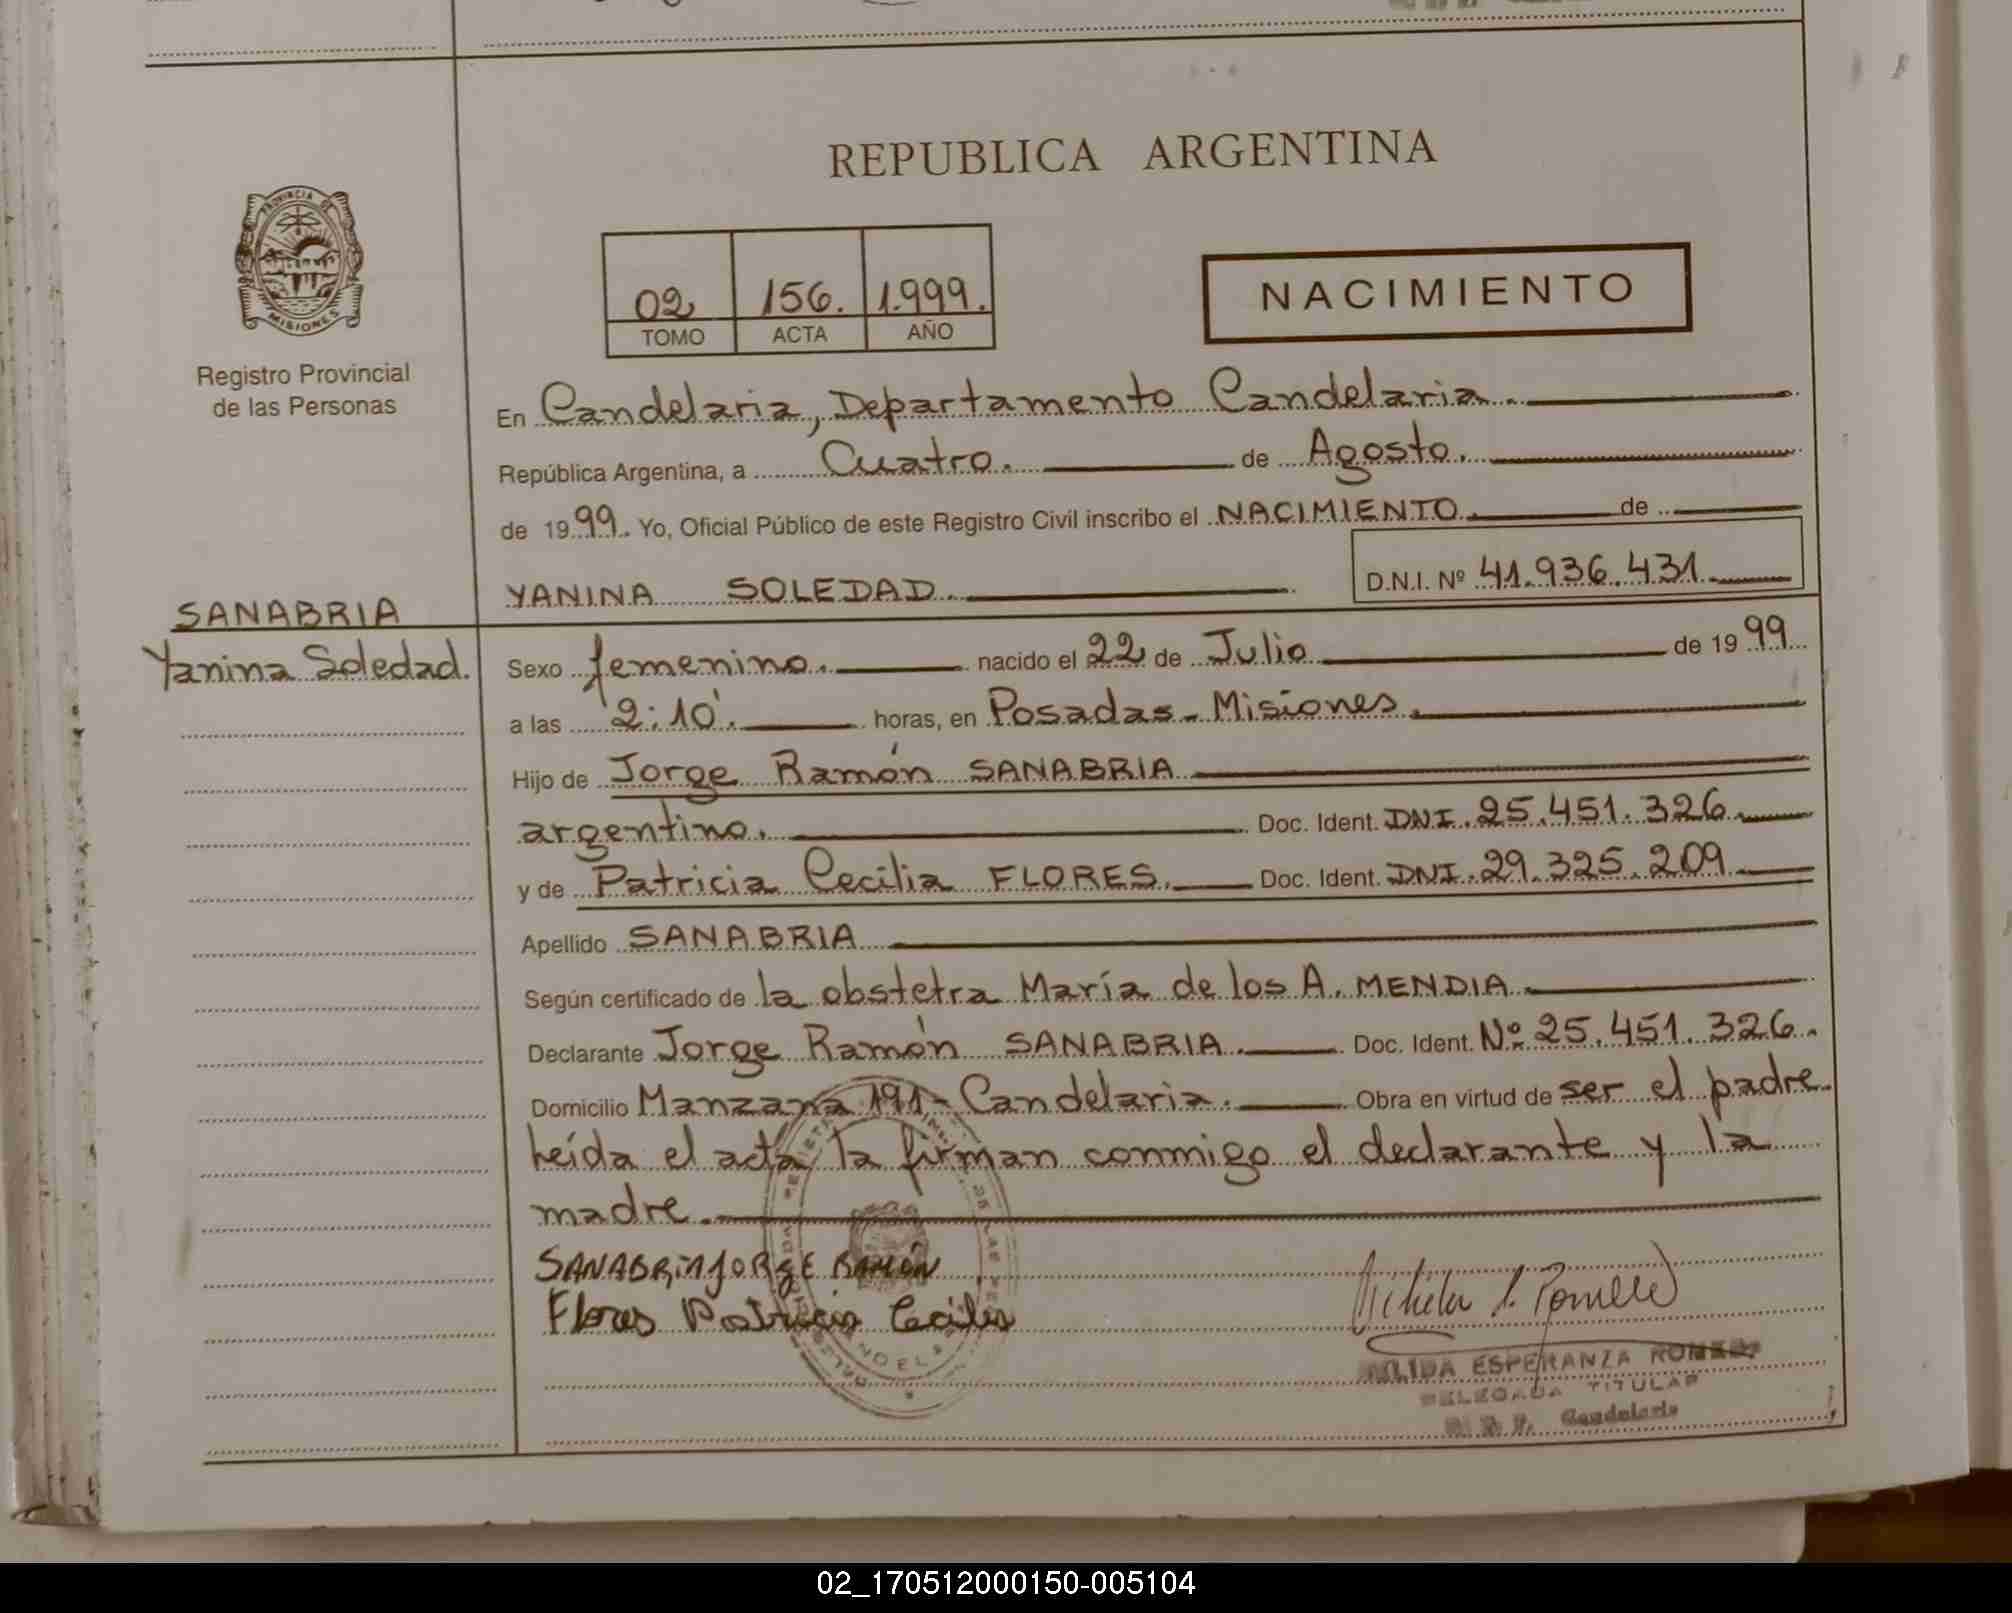 REPUBLICA ARGENTINA
PROVINCIA DE MISIONES
Registro Provincial
de las Personas
02 156. 1.999.
TOMO ACTA AÑO
NACIMIENTO
En Candelaria, Departamento Candelaria.
República Argentina, a Cuatro. de Agosto.
de 1999. Yo, Oficial Público de este Registro Civil inscribo el NACIMIENTO de
YANINA SOLEDAD. D.N.I. Nº 41.936.431
SANABRIA
Yanina Soledad.
Sexo femenino. nacido el 22 de Julio de 1999
a las 2:10'. horas, en Posadas - Misiones.
Hijo de Jorge Ramón SANABRIA
argentino. Doc. Ident. DNI. 25.451.326
y de Patricia Cecilia FLORES. Doc. Ident. DNI. 29.325.209
Apellido SANABRIA
Según certificado de la obstetra María de los A. MENDIA
Declarante Jorge Ramón SANABRIA. Doc. Ident. Nº 25.451.326.
Domicilio Manzana 191 - Candelaria. Obra en virtud de ser el padre
Leída el acta, la firman conmigo el declarante y la
madre.
SANABRIA JORGE RAMÓN
Flores Patricia Cecilia
ESPERANZA
DELEGADA TITULAR
Candelaria
02_170512000150-005104